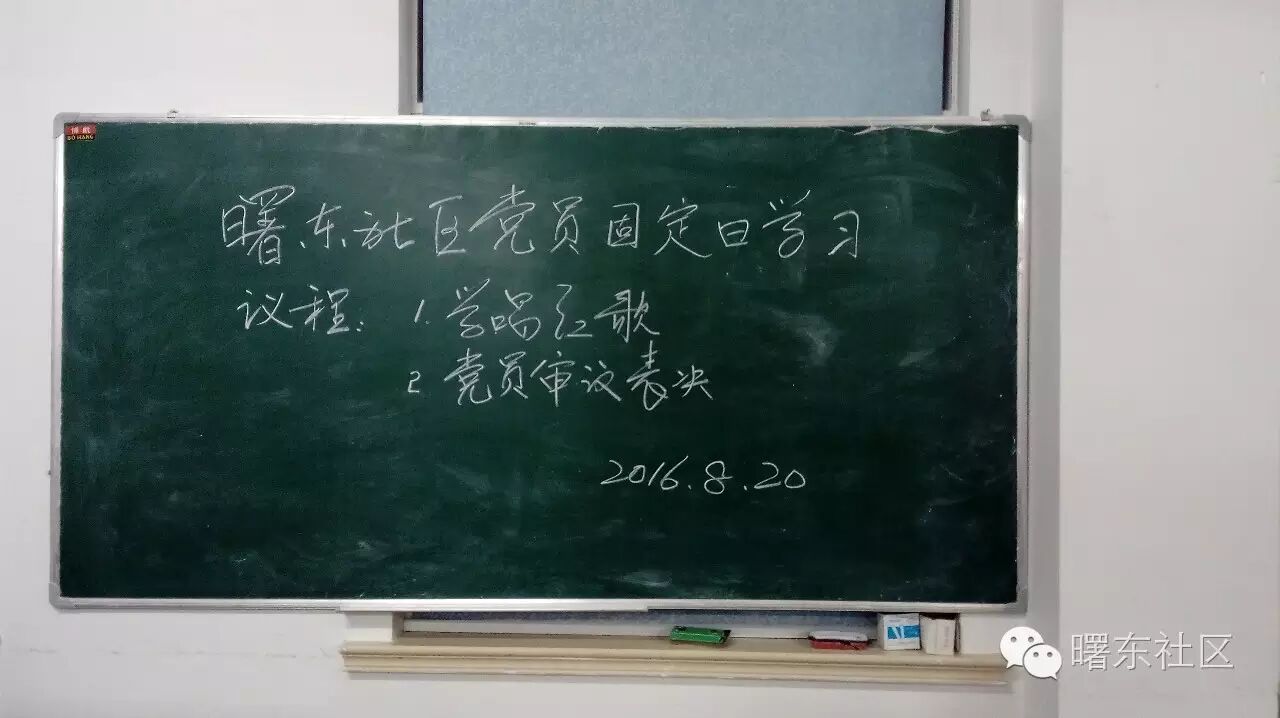 博航
BO HANG
曙东社区党员固定日学习
议程: 1. 学唱红歌
2 党员审议表决
2016.8.20
曙东社区